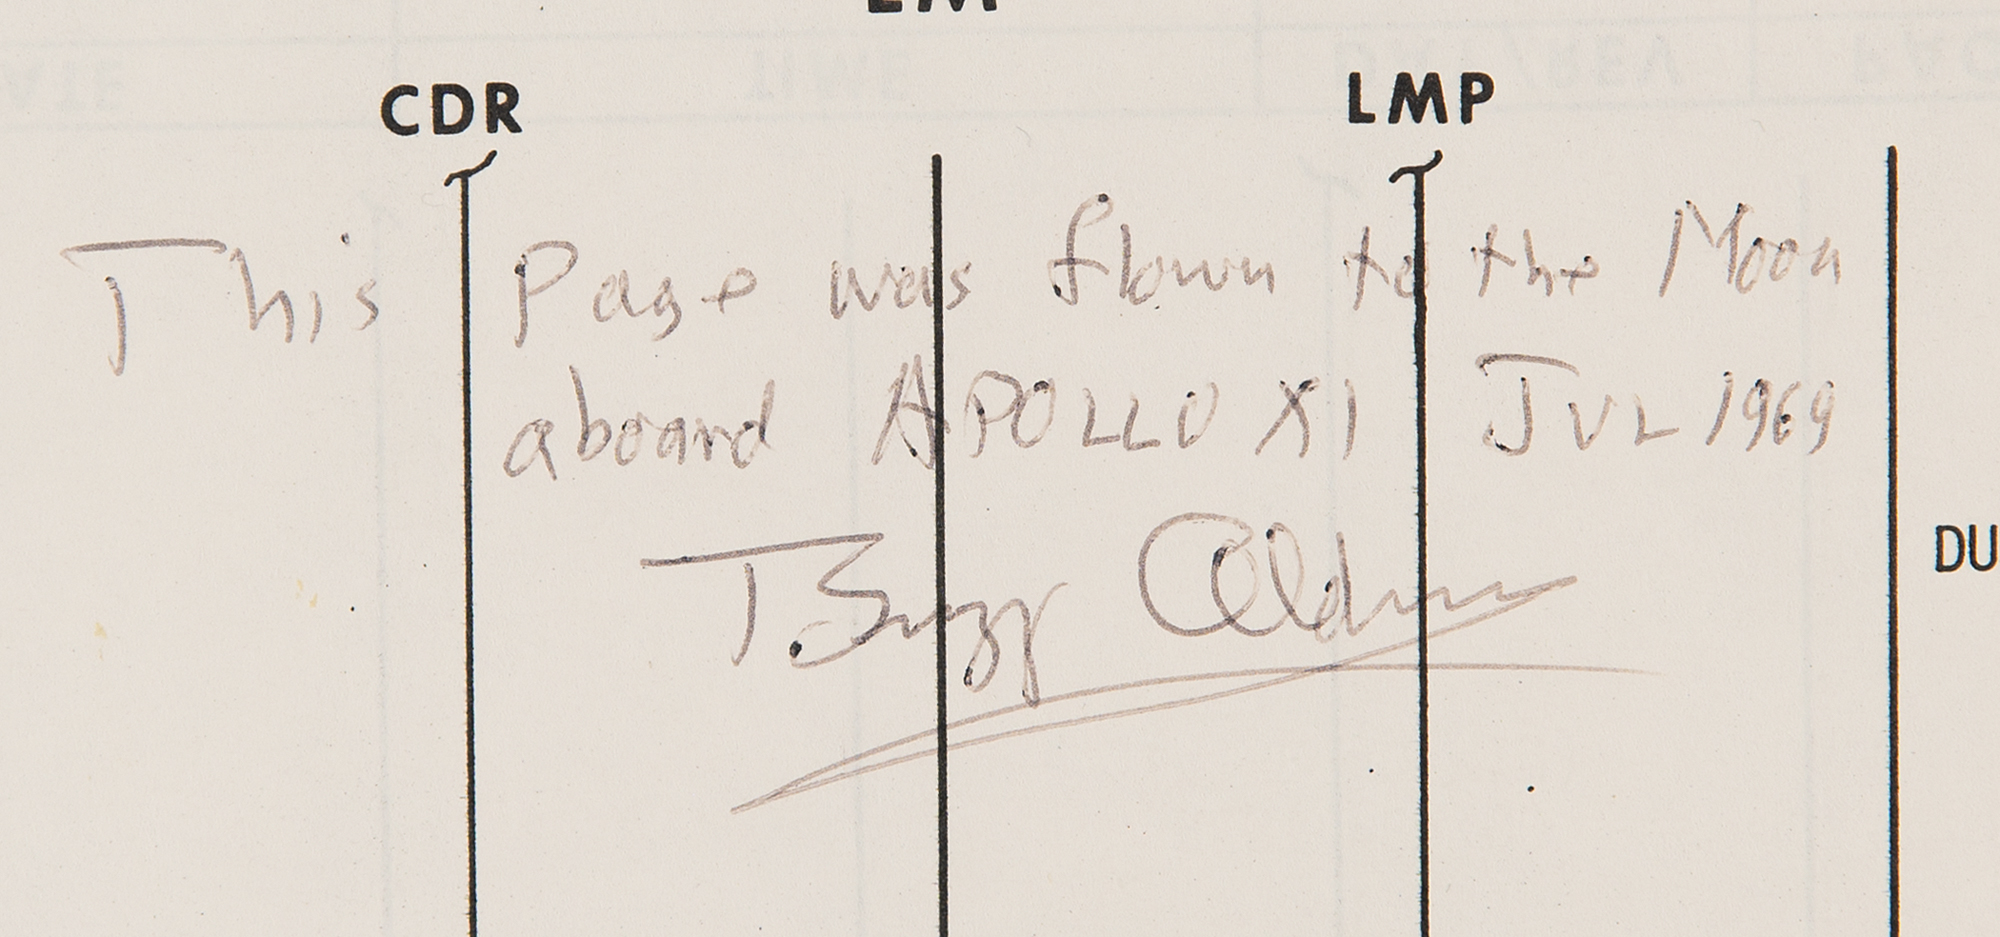 LM
CDR LMP
This Page was flown to the Moon
aboard APOLLO XI JUL 1969
DU
Buzz Aldrin